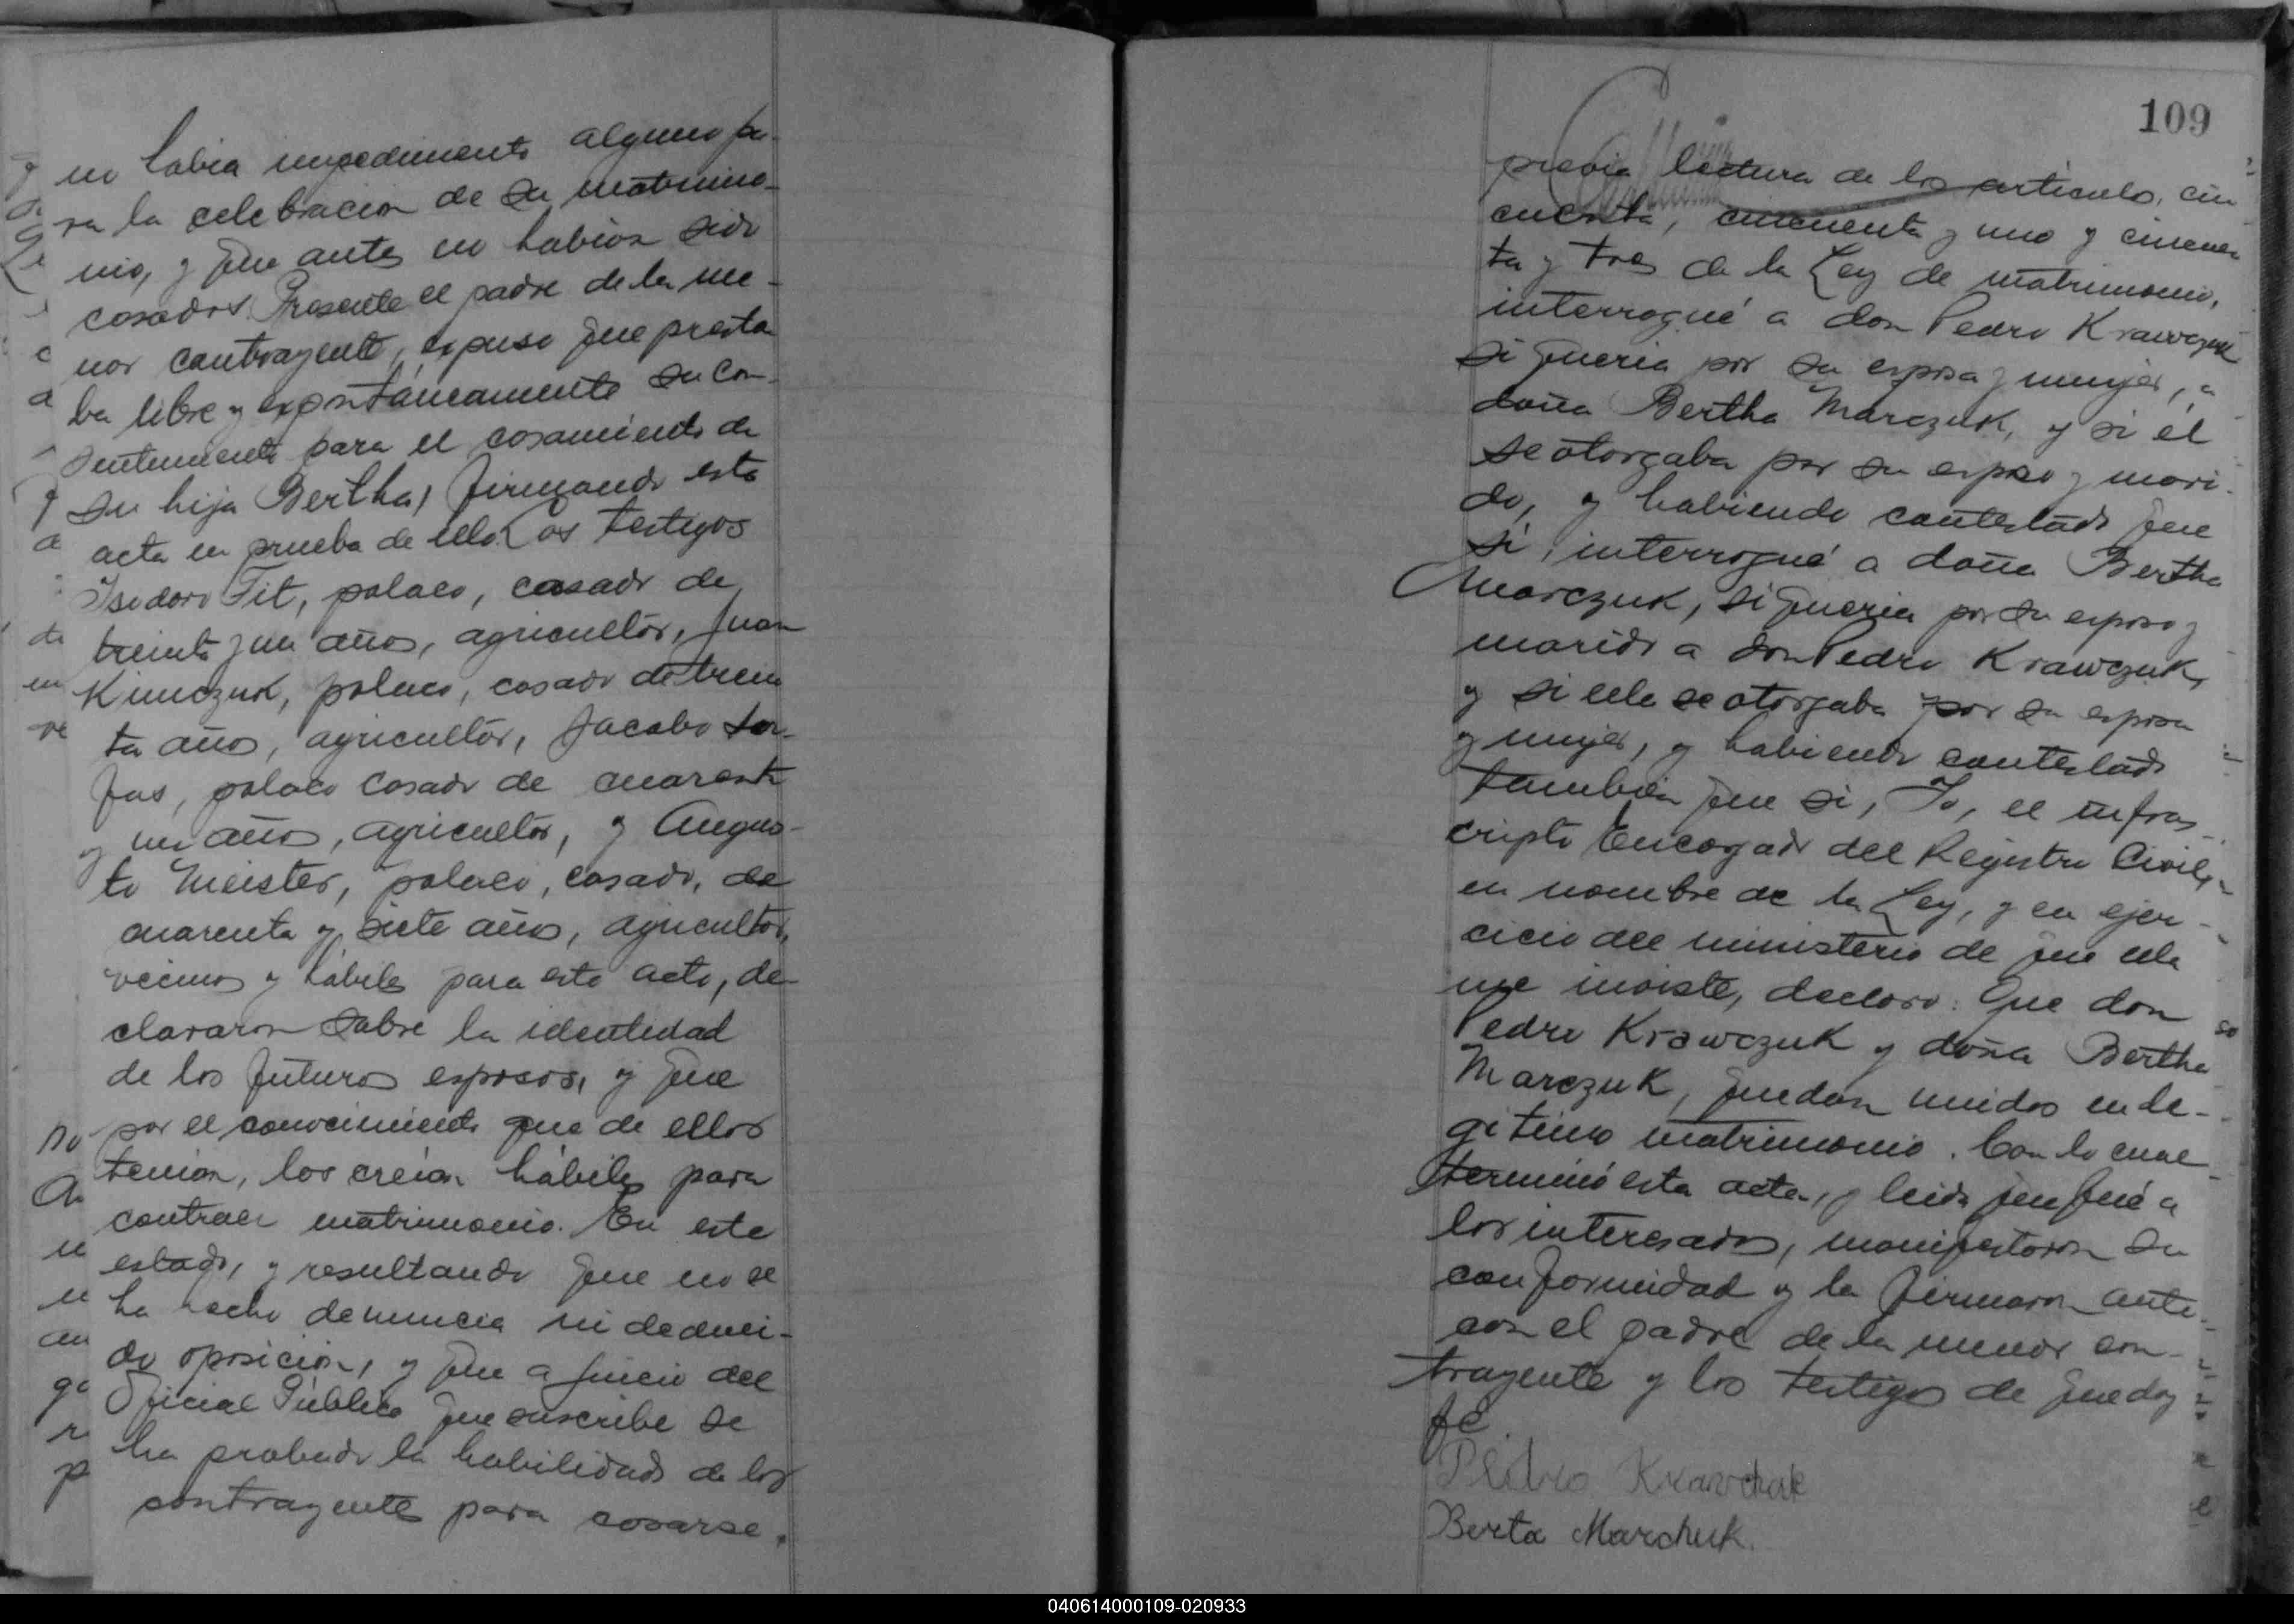 no habia impedimento alguno pa-
ra la celebracion de su matrimo-
nio, y que antes no habian sido
casados. Presente el padre de la me-
nor contrayente, expuso que presta
ba libre y expontáneamente su con-
sentimiento para el casamiento de
su hija Bertha, firmando esta
acta en prueba de ello. Los testigos
Isidoro Fit, polaco, casado de
treinta y un años, agricultor, Juan
Kimczuk, polaco, casado de trein
ta años, agricultor, Jacobo
polaco casado de cuarenta
y un años, agricultor, y Augus-
to Meister, polaco, casado, de
cuarenta y siete años, agricultor,
vecinos y hábiles para este acto, de-
clararon sobre la identidad
de los futuros esposos, y que
por el conocimiento que de ellos
tenian, los creian hábiles para
contraer matrimonio. En este
estado, y resultando que no se
ha hecho denuncia ni deduci-
do oposición, y que a juicio del
Oficial Público que suscribe se
ha probado la habilidad de los
contrayentes para casarse,
109
previa lectura de los articulos, cin
cuenta, cincuenta y uno y cincuen
ta y tres de la Ley de matrimonio,
interrogué a don Pedro Krawczuk
si queria por su esposa y mujer, a
doña Bertha Marczuk, y si él
se otorgaba por su esposo y mari-
do, y habiendo contestado que
si, interrogué a doña Bertha
Marczuk, si queria por su esposo y
marido a don Pedro Krawczuk,
y si ella se otorgaba por su esposa
y mujer, y habiendo contestado
también que si, Yo, el infras-
cripto Encargado del Registro Civil,
en nombre de la Ley, y en ejer-
cicio del ministerio de que ella
me inviste, declaro: Que don
Pedro Krawczuk y doña Bertha
Marczuk, quedan unidos en le-
gitimo matrimonio. Con lo cual
terminó esta acta, y leida que fué a
los interesados, manifestaron su
conformidad y la firmaron ante
con el padre de la menor con-
trayente y los testigos de que doy
fé
Pedro Krawchuk
Berta Marchuk.
040614000109-020933